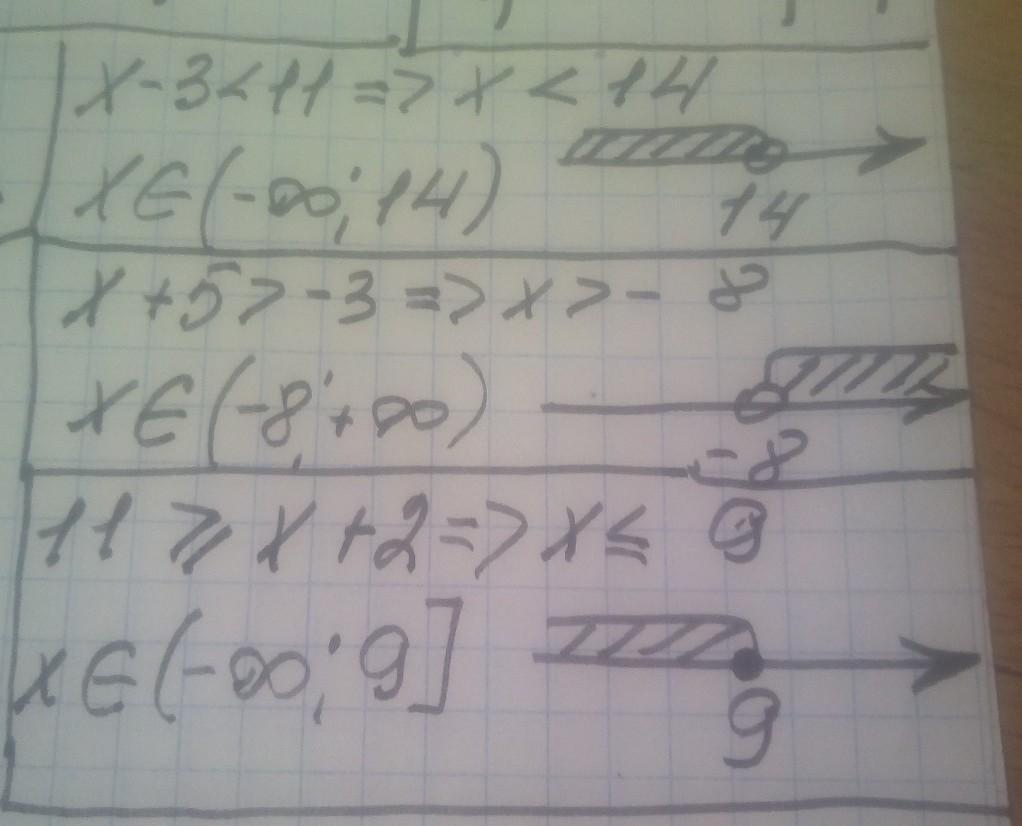 x - 3 < 11 => x < 14
x ∈ (-∞; 14)
14
x + 5 > -3 => x > - 8
x ∈ (-8; +∞)
-8
11 ⩾ x + 2 => x ≤ 9
x ∈ (-∞; 9]
9